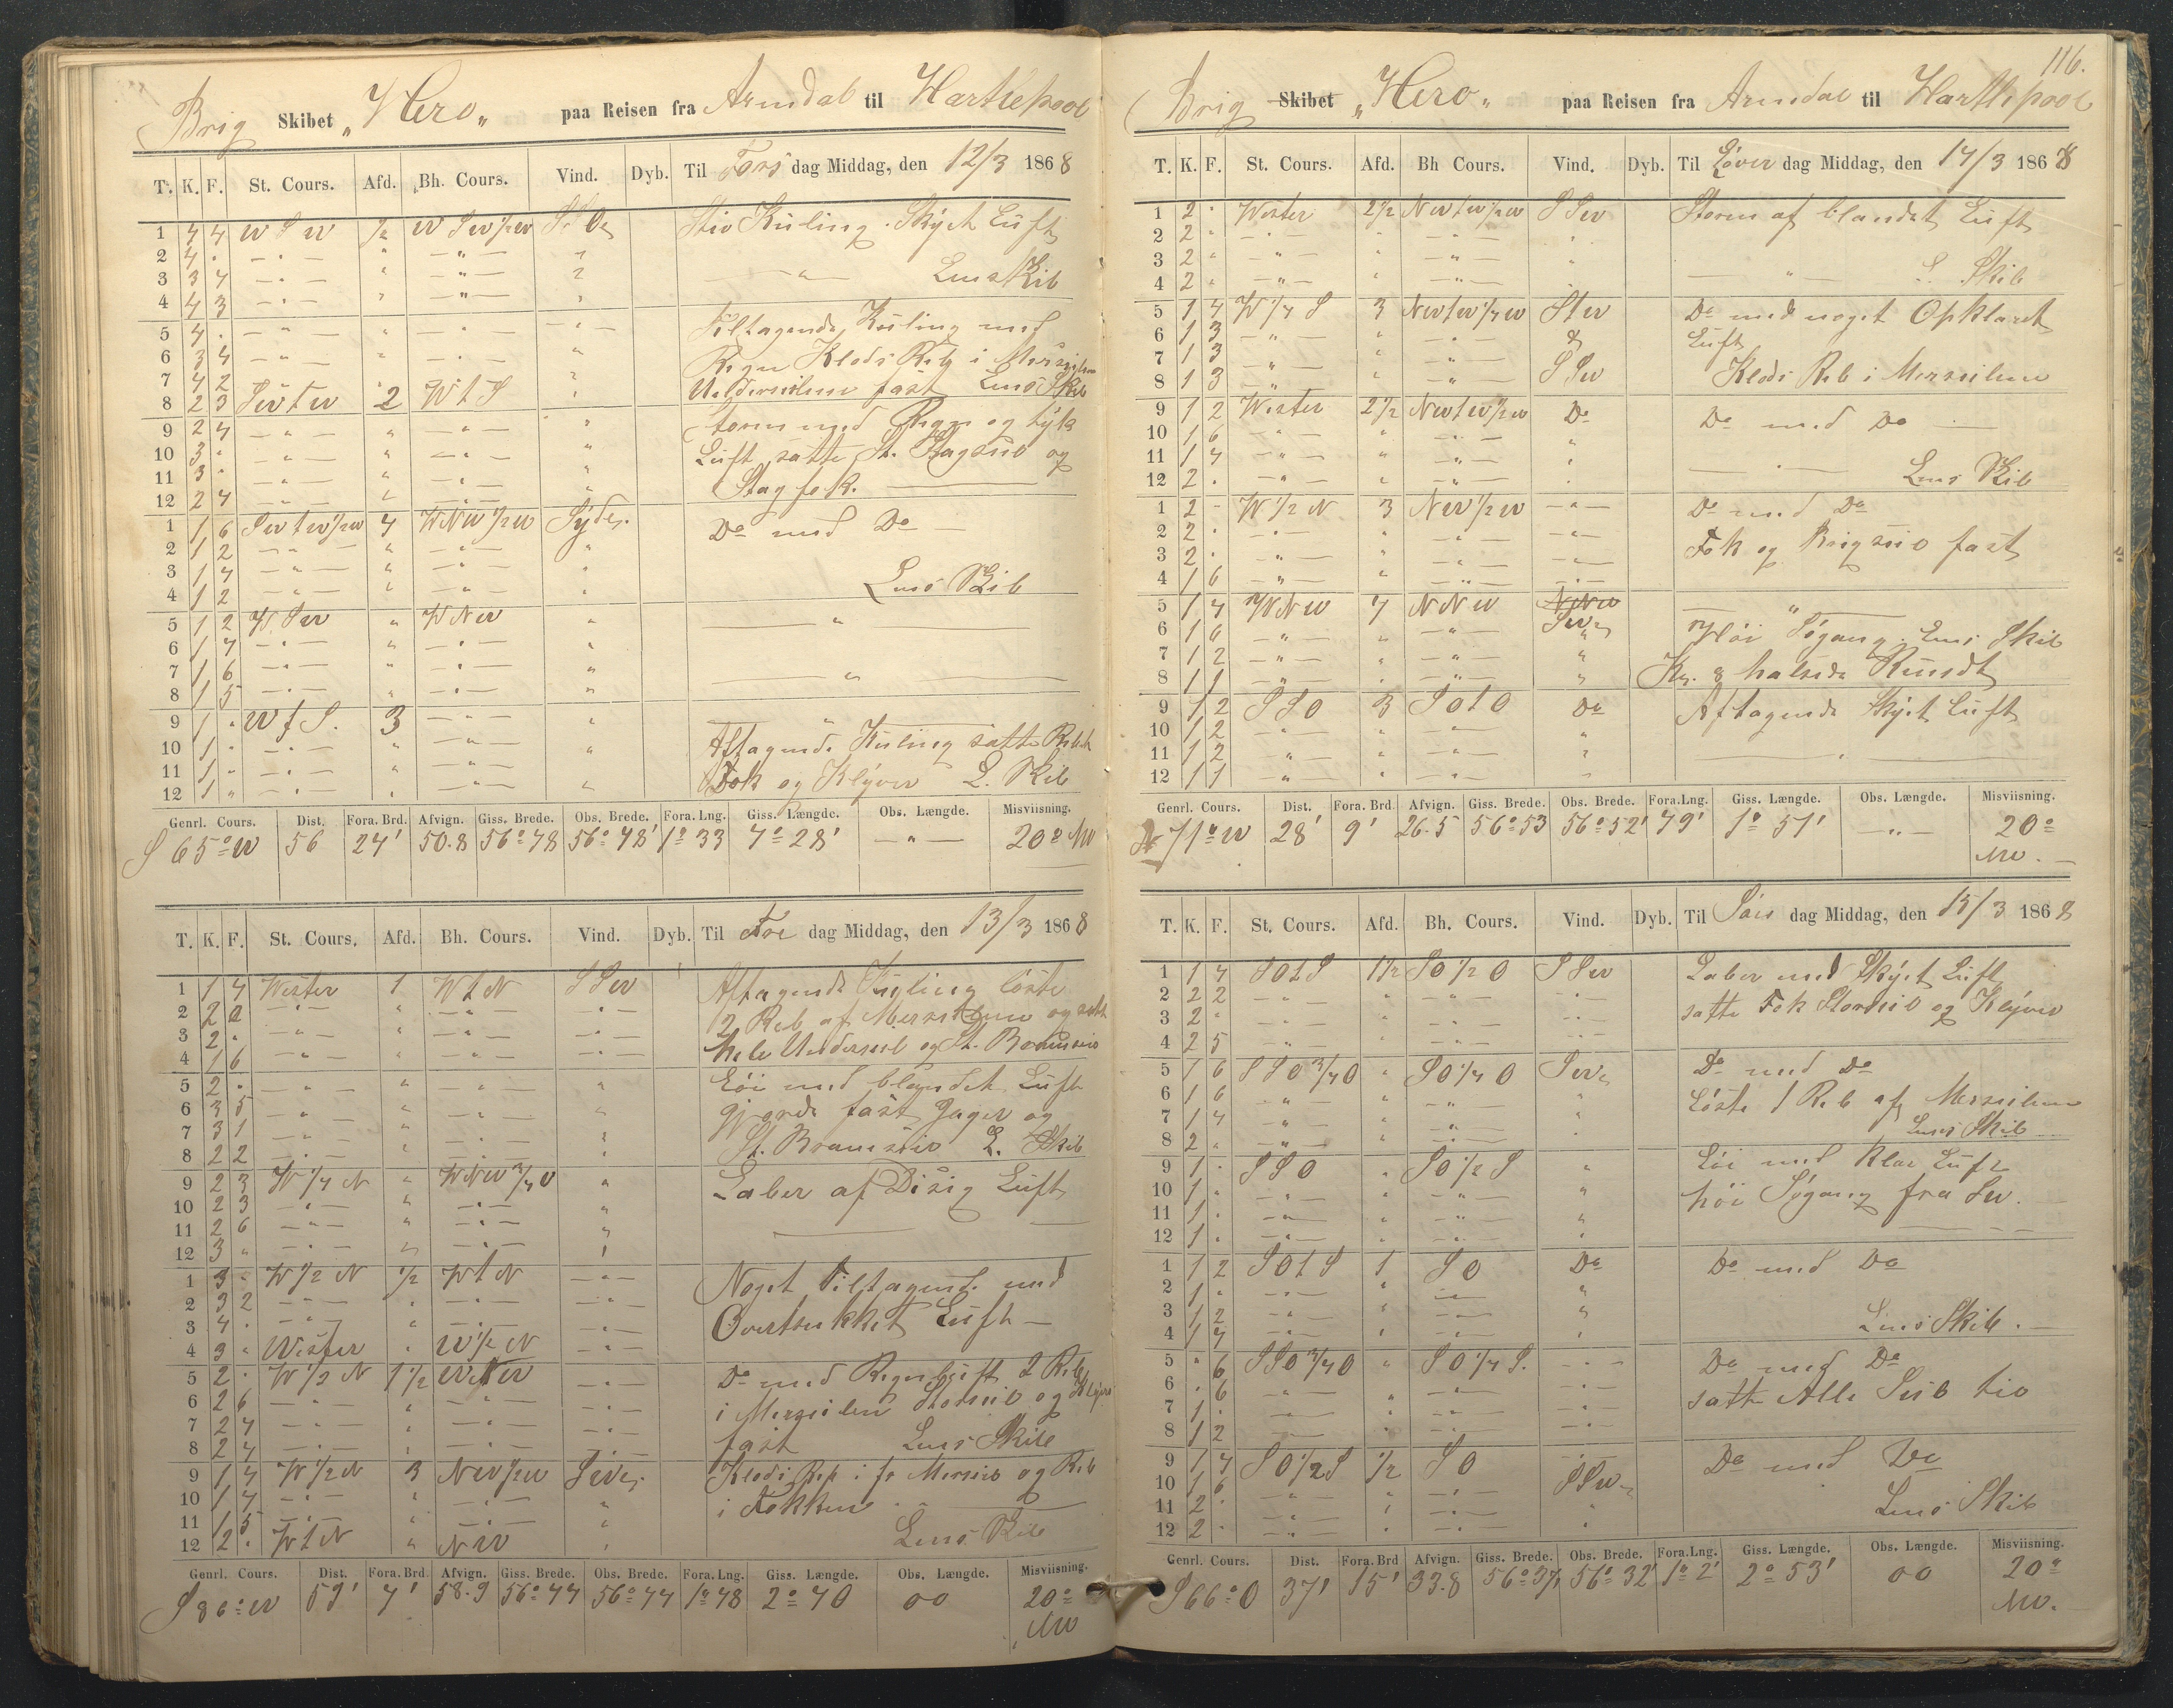 Brig Skibet „Hero„ paa Reisen fra Arendal til Hartlepool
T. K. F. St. Cours. Afd. Bh. Cours. Vind. Dyb. Til Tors dag Middag, den 12/3 1868
1 4 4 W S W 1/2 W S W 1/2 W Stiv Kuling. Skyet Luft
2 4
3 3 4 Lens Skib
4 4 3
5 4 Tiltagende Kuling med
6 3 4 Regn Klods Reb i Mersseilene
7 4 2 Underseilene fast Lens Skib
8 2 3 SW t W 2 W t S
9 2 4 Storm med Regn og tyk
10 3 Luft, satte St. Stagseil og
11 3 Stagfok.
12 2 4
1 1 6 SW t W 1/2 W 4 WNW 1/2 W Syd Do med Do
2 1 2
3 1 4
4 1 2 Lens Skib
5 1 2 W SW WNW
6 1 4
7 1 6
8 1 5
9 1 W t S. 3
10 1 Aftagende Kuling satte Rebet
11 1 Fok og Klyver L. Skib
12 1
Genrl. Cours. Dist. Fora. Brd. Afvign. Giss. Brede. Obs. Brede. Fora. Lng. Giss. Længde. Obs. Længde. Misviisning.
S 65° W 56 24' 50.8 56°48 56°48' 1°33 4°28' 20° NW
T. K. F. St. Cours. Afd. Bh. Cours. Vind. Dyb. Til Fre dag Middag, den 13/3 1868
1 1 4 Wester 1 W t N SSW Aftagende Kuling löste
2 2 2 2 Reb af Merseilene og satte
3 2 hele Underseil og St. Bramseil
4 1 6
5 2 Löi med blandet Luft
6 3 5 gjorde fast Jager og
7 3 1 St. Bramseil L. Skib
8 2 2
9 2 3 W 1/4 N WNW 3/4 Laber af Disig Luft
10 2 3
11 2 6
12 3
1 3 W 1/2 N 1/2 W t N Noget Tiltagende med
2 3 2 Overtrukket Luft
3 4
4 3 Wester W 1/2 N
5 2 W 1/2 N 1 1/2 WNW Do med Regnluft 2 Reb
6 2 6 i Merseilene Storseil og Klyver
7 2 4 fast Lens Skib
8 2 4
9 1 4 W 1/2 N 3 NW 1/2 W SW Klods Reb i for Merseil og Reb
10 1 4 i Fokken
11 1 5
12 2 W t N NW Lens Skib
Genrl. Cours. Dist. Fora. Brd. Afvign. Giss. Brede. Obs. Brede. Fora. Lng. Giss. Længde. Obs. Længde. Misviisning.
S 86° W 59' 4' 58.9 56°44 56°44 1°48 2°40 00 20° NW
116.
Brig Skibet „Hero„ paa Reisen fra Arendal til Hartlepool
T. K. F. St. Cours. Afd. Bh Cours. Vind. Dyb. Til Løver dag Middag, den 14/3 1868
1 2 Wester 2 1/2 NW t W 1/2 W SSW Storm af blandet Luft
2 2
3 2
4 2 L. Skib
5 1 4 W 1/4 S 3 NW t W 1/4 W S t W Do med noget Opklaret
6 1 3 & Luft
7 1 3 SSW Klods Reb i Merseilene
8 1 3
9 1 2 Wester 2 1/2 NW t W 1/2 W Do Do med Do
10 1 6
11 1 4
12 2 Lens Skib
1 2 W 1/2 N 3 NW 1/2 W Do med Do
2 2 Fok og Brigseil fast
3 2
4 1 6
5 1 4 WNW 4 NNW NNW
6 1 6 SW Höi Søgang. Lens Skib
7 1 2 Kl. 8 halsede Rundt
8 1 1
9 1 2 SSO 3 SO t O Do Aftagende Skyet Luft
10 1 2
11 1 2
12 1 1
Genrl. Cours. Dist. Fora. Brd. Afvign. Giss. Brede. Obs. Brede. Fora. Lng. Giss. Længde. Obs. Længde. Misviisning.
N 71° W 28' 9' 26.5 56°53 56°52' 49' 1° 51' 20° NW.
T. K. F. St. Cours. Afd. Bh. Cours. Vind. Dyb. Til Søn dag Middag, den 15/3 1868
1 1 4 SO t S 1 1/2 SO 1/2 O SSW Laber med Skyet Luft
2 2 2 satte Fok Storseil og Klyver
3 2
4 2 5
5 1 6 SSO 3/4 O SO 1/4 O SW Do med Do
6 1 6 Löste 1 Reb af Merseilene
7 1 4 Lens Skib
8 2
9 1 SSO SO 1/2 S Löi med Klar Luft
10 1 höi Søgang fra SW.
11 1
12 1
1 1 2 SO t S 1 SO Do Do med Do
2 1
3 1 2 Lens Skib.
4 1 4
5 6 SSO 3/4 O SO 1/4 S. Do med Do
6 6 satte Alle Seil til
7 1
8 1 2
9 1 4 SO 1/2 S 1/2 SO Do med Do
10 1 6 SSW
11 2 Lens Skib
12 2
Genrl. Cours. Dist. Fora. Brd Afvign. Giss. Brede. Obs. Brede. Fora. Lng. Giss. Længde. Obs. Længde. Misviisning.
S 66° O 37' 15' 33.8 56°37' 56°32' 1°2' 2° 53' 00 20° NW.